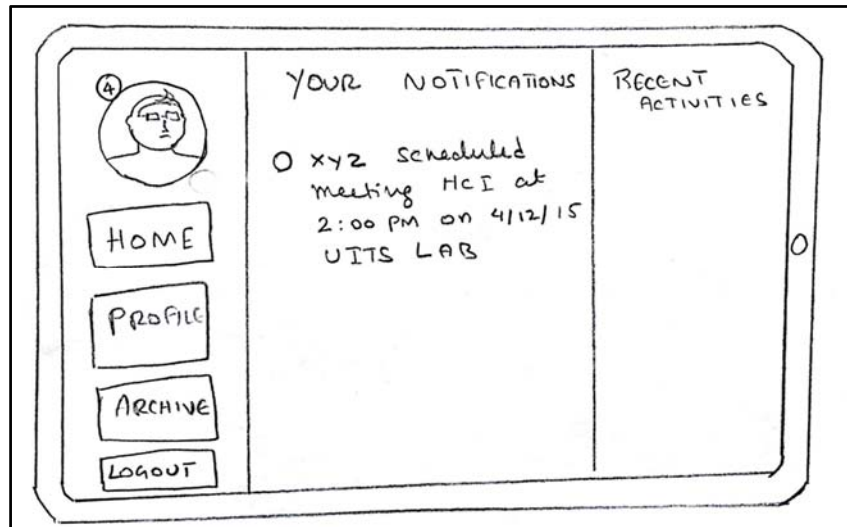 4
HOME
PROFILE
ARCHIVE
LOGOUT
YOUR NOTIFICATIONS
XYZ scheduled
meeting HCI at
2:00 PM on 4/12/15
UITS LAB
RECENT
ACTIVITIES